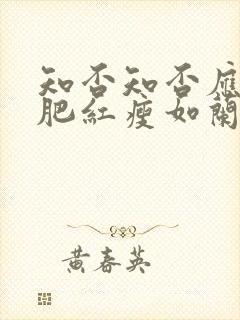 知否知否應
肥紅瘦如蘭
黃春英